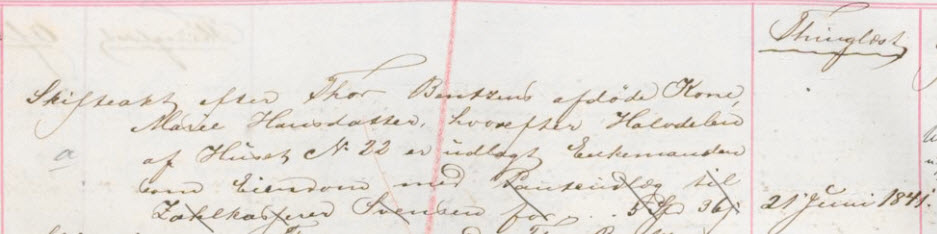 Thinglæst
Skifteakt efter Thor Bentzens afdöde Kone,
Maree Hansdatter, hvorefter Halvdelen
a af Huset N. 22 er udlagt Enkemanden
som Eiendom med Panteudlæg til
Zahlkasserer Svensen for . . 5 Sp 36 s 21 Juni 1841.